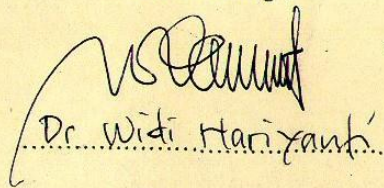 Dr Widi Hariyanti